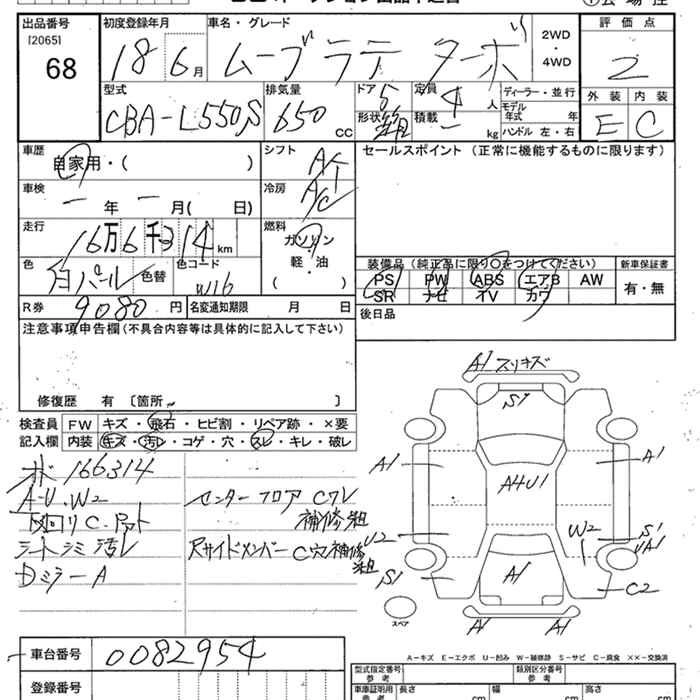 出品番号 初度登録年月 車名・グレード 評価点
[2065]
68 18 6月 ムーヴ ラテ ターボ 2WD・4WD 2
型式 排気量 ドア 5 定員 4人 ディーラー・並行 外装 内装
CBA-L550S 650 CC 形状 箱 積載 — kg モデル年式 年 ハンドル 左・右 E C
車歴 シフト セールスポイント (正常に機能するものに限ります)
自家用・( ) AT
車検 冷房
— 年 — 月( 日) A/C
走行 燃料
16万6千314km ガソリン
色 色替 色コード 軽・油 装備品(純正品に限り○をつけてください) 新車保証書
白パール W16 ( ) PS PW ABS エアB AW 有・無
SR ナビ TV カワ
R券 9080円 名変通知期限 月 日 後日品
注意事項申告欄(不具合内容等は具体的に記入して下さい)
修復歴 有 〔箇所
検査員 FW キズ・飛石・ヒビ割・リペア跡・×要
記入欄 内装 キズ・汚レ・コゲ・穴・スレ・キレ・破レ
メーター 166314
A-U.W2
シートシミ汚レ
DミラーA
センターフロアCワレ
補修組
RサイドメンバーC穴補修
組
A1 スリキズ
S1
A1 A1
A4U1
U2 W2 S1
UA1
S1 A1 C2
スペア A1 A1
A-キズ E-エクボ U-凹み W-補修跡 S-サビ C-腐食 ××-交換済
車台番号 0082954
型式指定番号 参考 類別区分番号 参考
登録番号 車庫証明用 参考 長さ cm 幅 cm 高さ cm